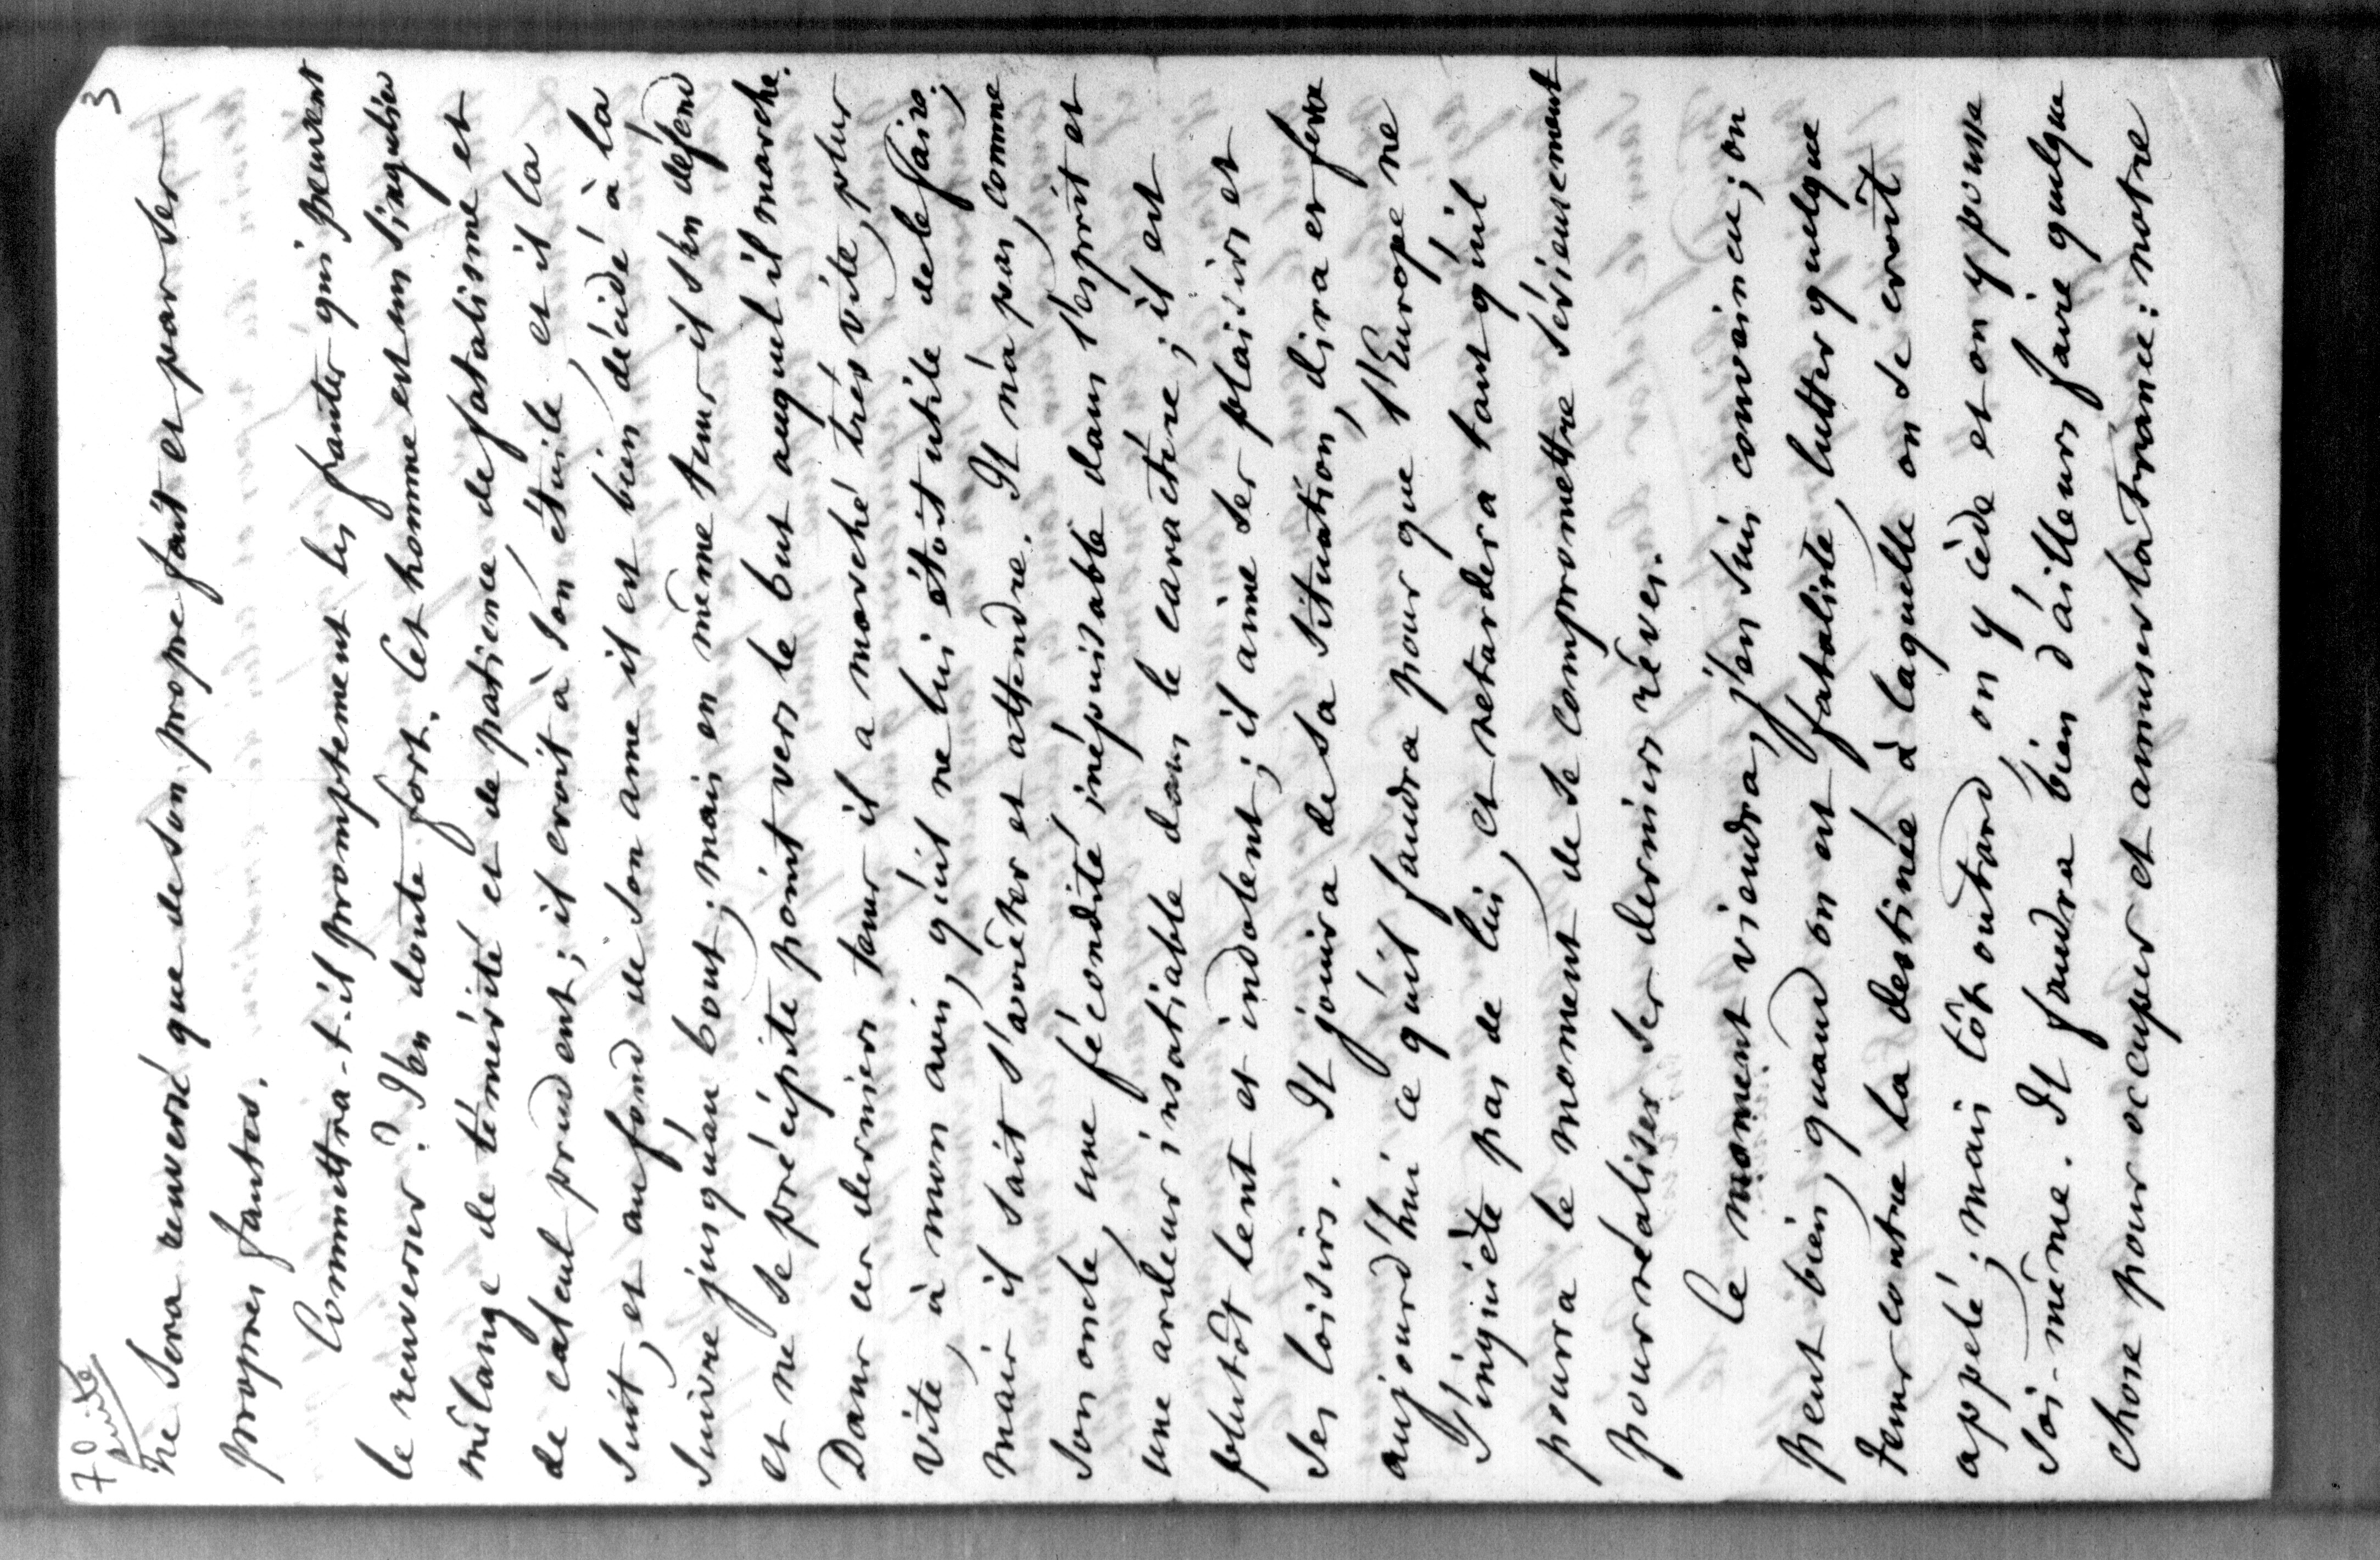 70
suite
3
ne sera renversé que de son propre fait et par ses
propres fautes.
Commettra-t-il promptement les fautes qui peuvent
le renverser? J'en doute fort. Cet homme est un singulier
mélange de témérité et de patience, de fatalisme et
de calcul prudent; il croit à son étoile, et il la
suit, et au fond de son ame il est bien décidé à la
suivre jusqu'au bout; mais en même tems il s'en défend
et ne se précipite point vers le but auquel il marche.
Dans ces derniers tems il a marché très vite, plus
vite, à mon avis, qu'il ne lui étoit utile de le faire;
mais il sait s'arrêter et attendre. Il n'a pas, comme
son oncle, une fécondité inépuisable dans l'esprit et
une ardeur insatiable dans le caractère; il est
plutôt lent et indolent; il aime ses plaisirs et
ses loisirs. Il jouira de sa situation, dira et fera
aujourd'hui ce qu'il faudra pour que l'Europe ne
s'inquiète pas de lui, et retardera tant qu'il
pourra le moment de se compromettre sérieusement
pour réaliser ses derniers rêves.
Ce moment viendra, j'en suis convaincu; on
peut bien, quand on est fataliste, lutter quelque
tems contre la destinée à laquelle on se croit
appelé; mais tôt ou tard on y cède et on y pousse
soi-même. Il faudra bien d'ailleurs faire quelque
chose pour occuper et amuser la France: notre